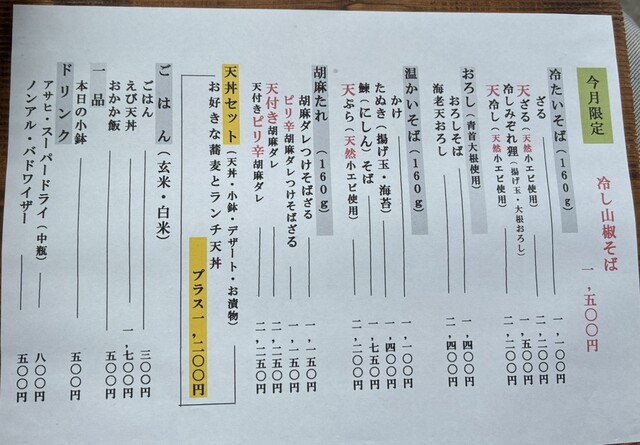 今月限定
冷し山椒そば 一,五〇〇円
冷たいそば(160g)
ざる 一,一〇〇円
天ざる(天然小エビ使用) 二,二〇〇円
冷しみぞれ狸(揚げ玉・大根おろし) 一,五〇〇円
天冷し(天然小エビ使用) 二,二〇〇円
おろし(青首大根使用)
おろしそば 一,四〇〇円
海老天おろし 二,四〇〇円
温かいそば(160g)
かけ 一,一〇〇円
たぬき(揚げ玉・海苔) 一,四〇〇円
鰊(にしん)そば 一,七五〇円
天ぷら(天然小エビ使用) 二,二〇〇円
胡麻たれ(160g)
胡麻ダレつけそばざる 一,一五〇円
ピリ辛胡麻ダレつけそばざる 一,一五〇円
天付き胡麻ダレ 二,二五〇円
天付きピリ辛胡麻ダレ 二,二五〇円
天丼セット(天丼・小鉢・デザート・お漬物)
お好きな蕎麦とランチ天丼 プラス一,二〇〇円
ごはん(玄米・白米)
ごはん 三〇〇円
えび天丼 一,七〇〇円
おかか飯 五〇〇円
一品
本日の小鉢 五〇〇円
ドリンク
アサヒ・スーパードライ(中瓶) 八〇〇円
ノンアル・バドワイザー 五〇〇円